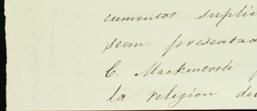 cumentos suplic
sean presentad
C. Mackintosh
la religion du